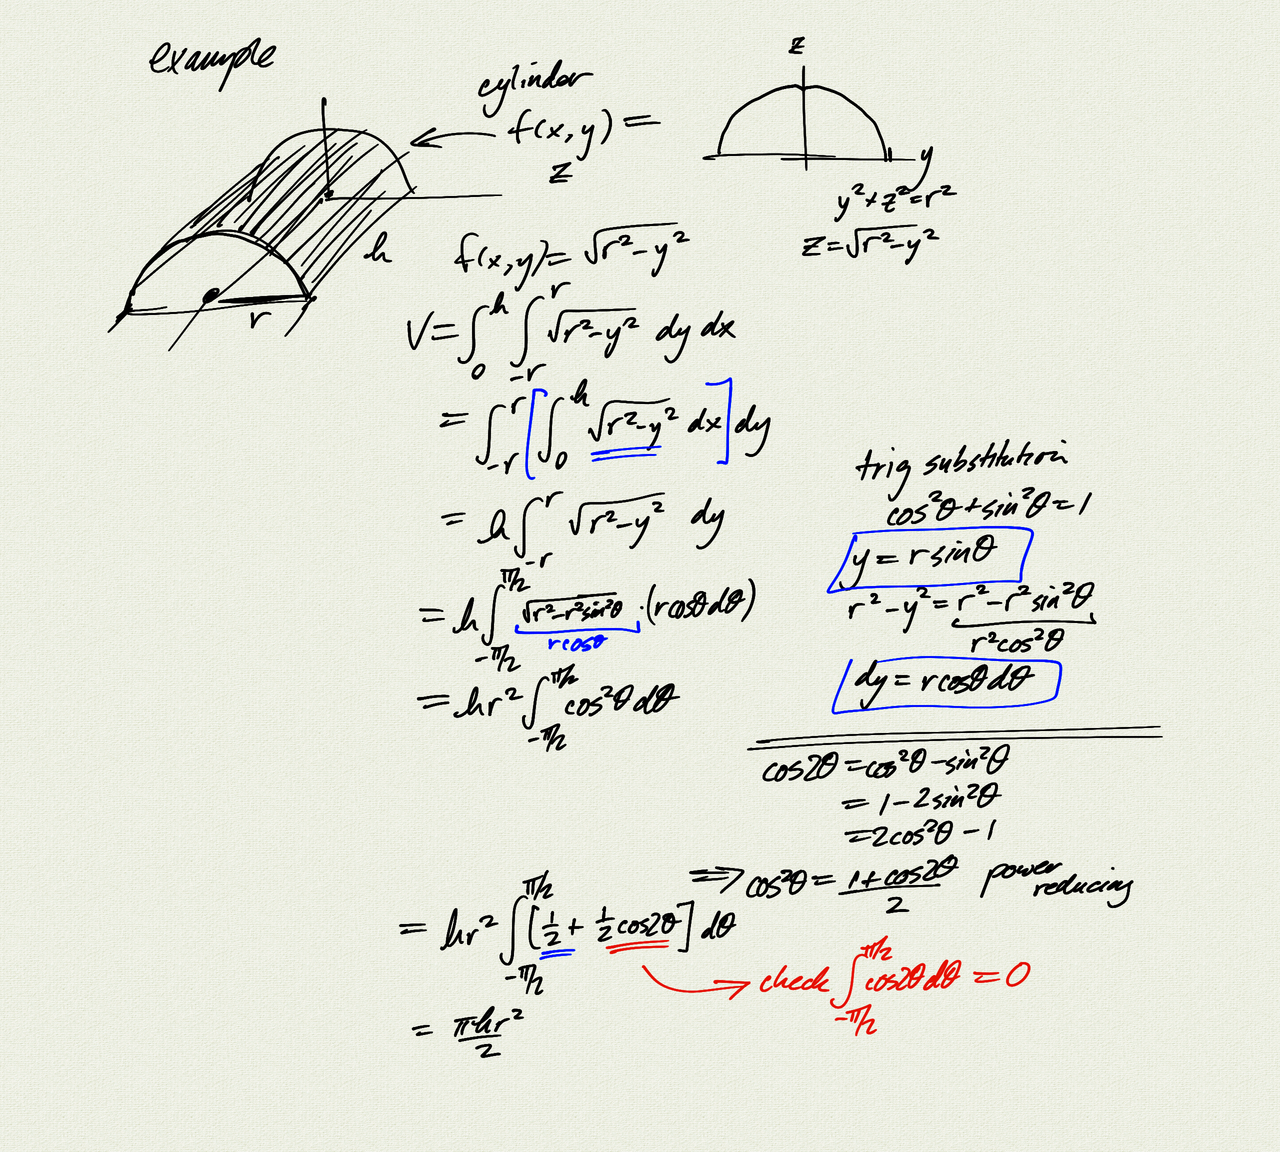 example
cylinder
f(x,y) =
z
z
y
y²+z²=r²
z=√(r²-y²)
h
r
f(x,y)=√(r²-y²)
V=∫₀ʰ ∫₋ᵣʳ √(r²-y²) dy dx
= ∫₋ᵣʳ [∫₀ʰ √(r²-y²) dx] dy
= h∫₋ᵣʳ √(r²-y²) dy
= h∫_{-π/2}^{π/2} √(r²-r²sin²θ) · (rcosθdθ)
rcosθ
= hr² ∫_{-π/2}^{π/2} cos²θdθ
trig substitution
cos²θ+sin²θ=1
y = r sinθ
r²-y²= r²-r²sin²θ
r²cos²θ
dy = rcosθdθ
cos2θ = cos²θ-sin²θ
= 1-2sin²θ
=2cos²θ-1
⇒ cos²θ = (1+cos2θ)/2 power reducing
= hr² ∫_{-π/2}^{π/2} [1/2 + 1/2 cos2θ] dθ
→ check ∫_{-π/2}^{π/2} cos2θdθ = 0
= πhr²/2